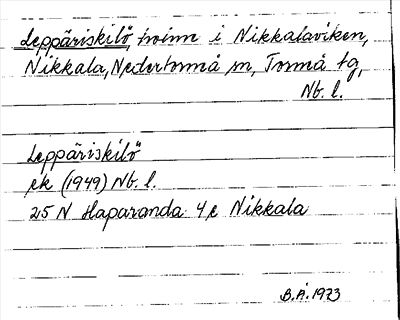 Leppäriskilö, holme i Nikkalaviken,
Nikkala, Nedertorneå sn, Torneå tg,
Nb. l.
Leppäriskilö
ek (1949) Nb. l.
25 N Haparanda 4e Nikkala
B.Å. 1973